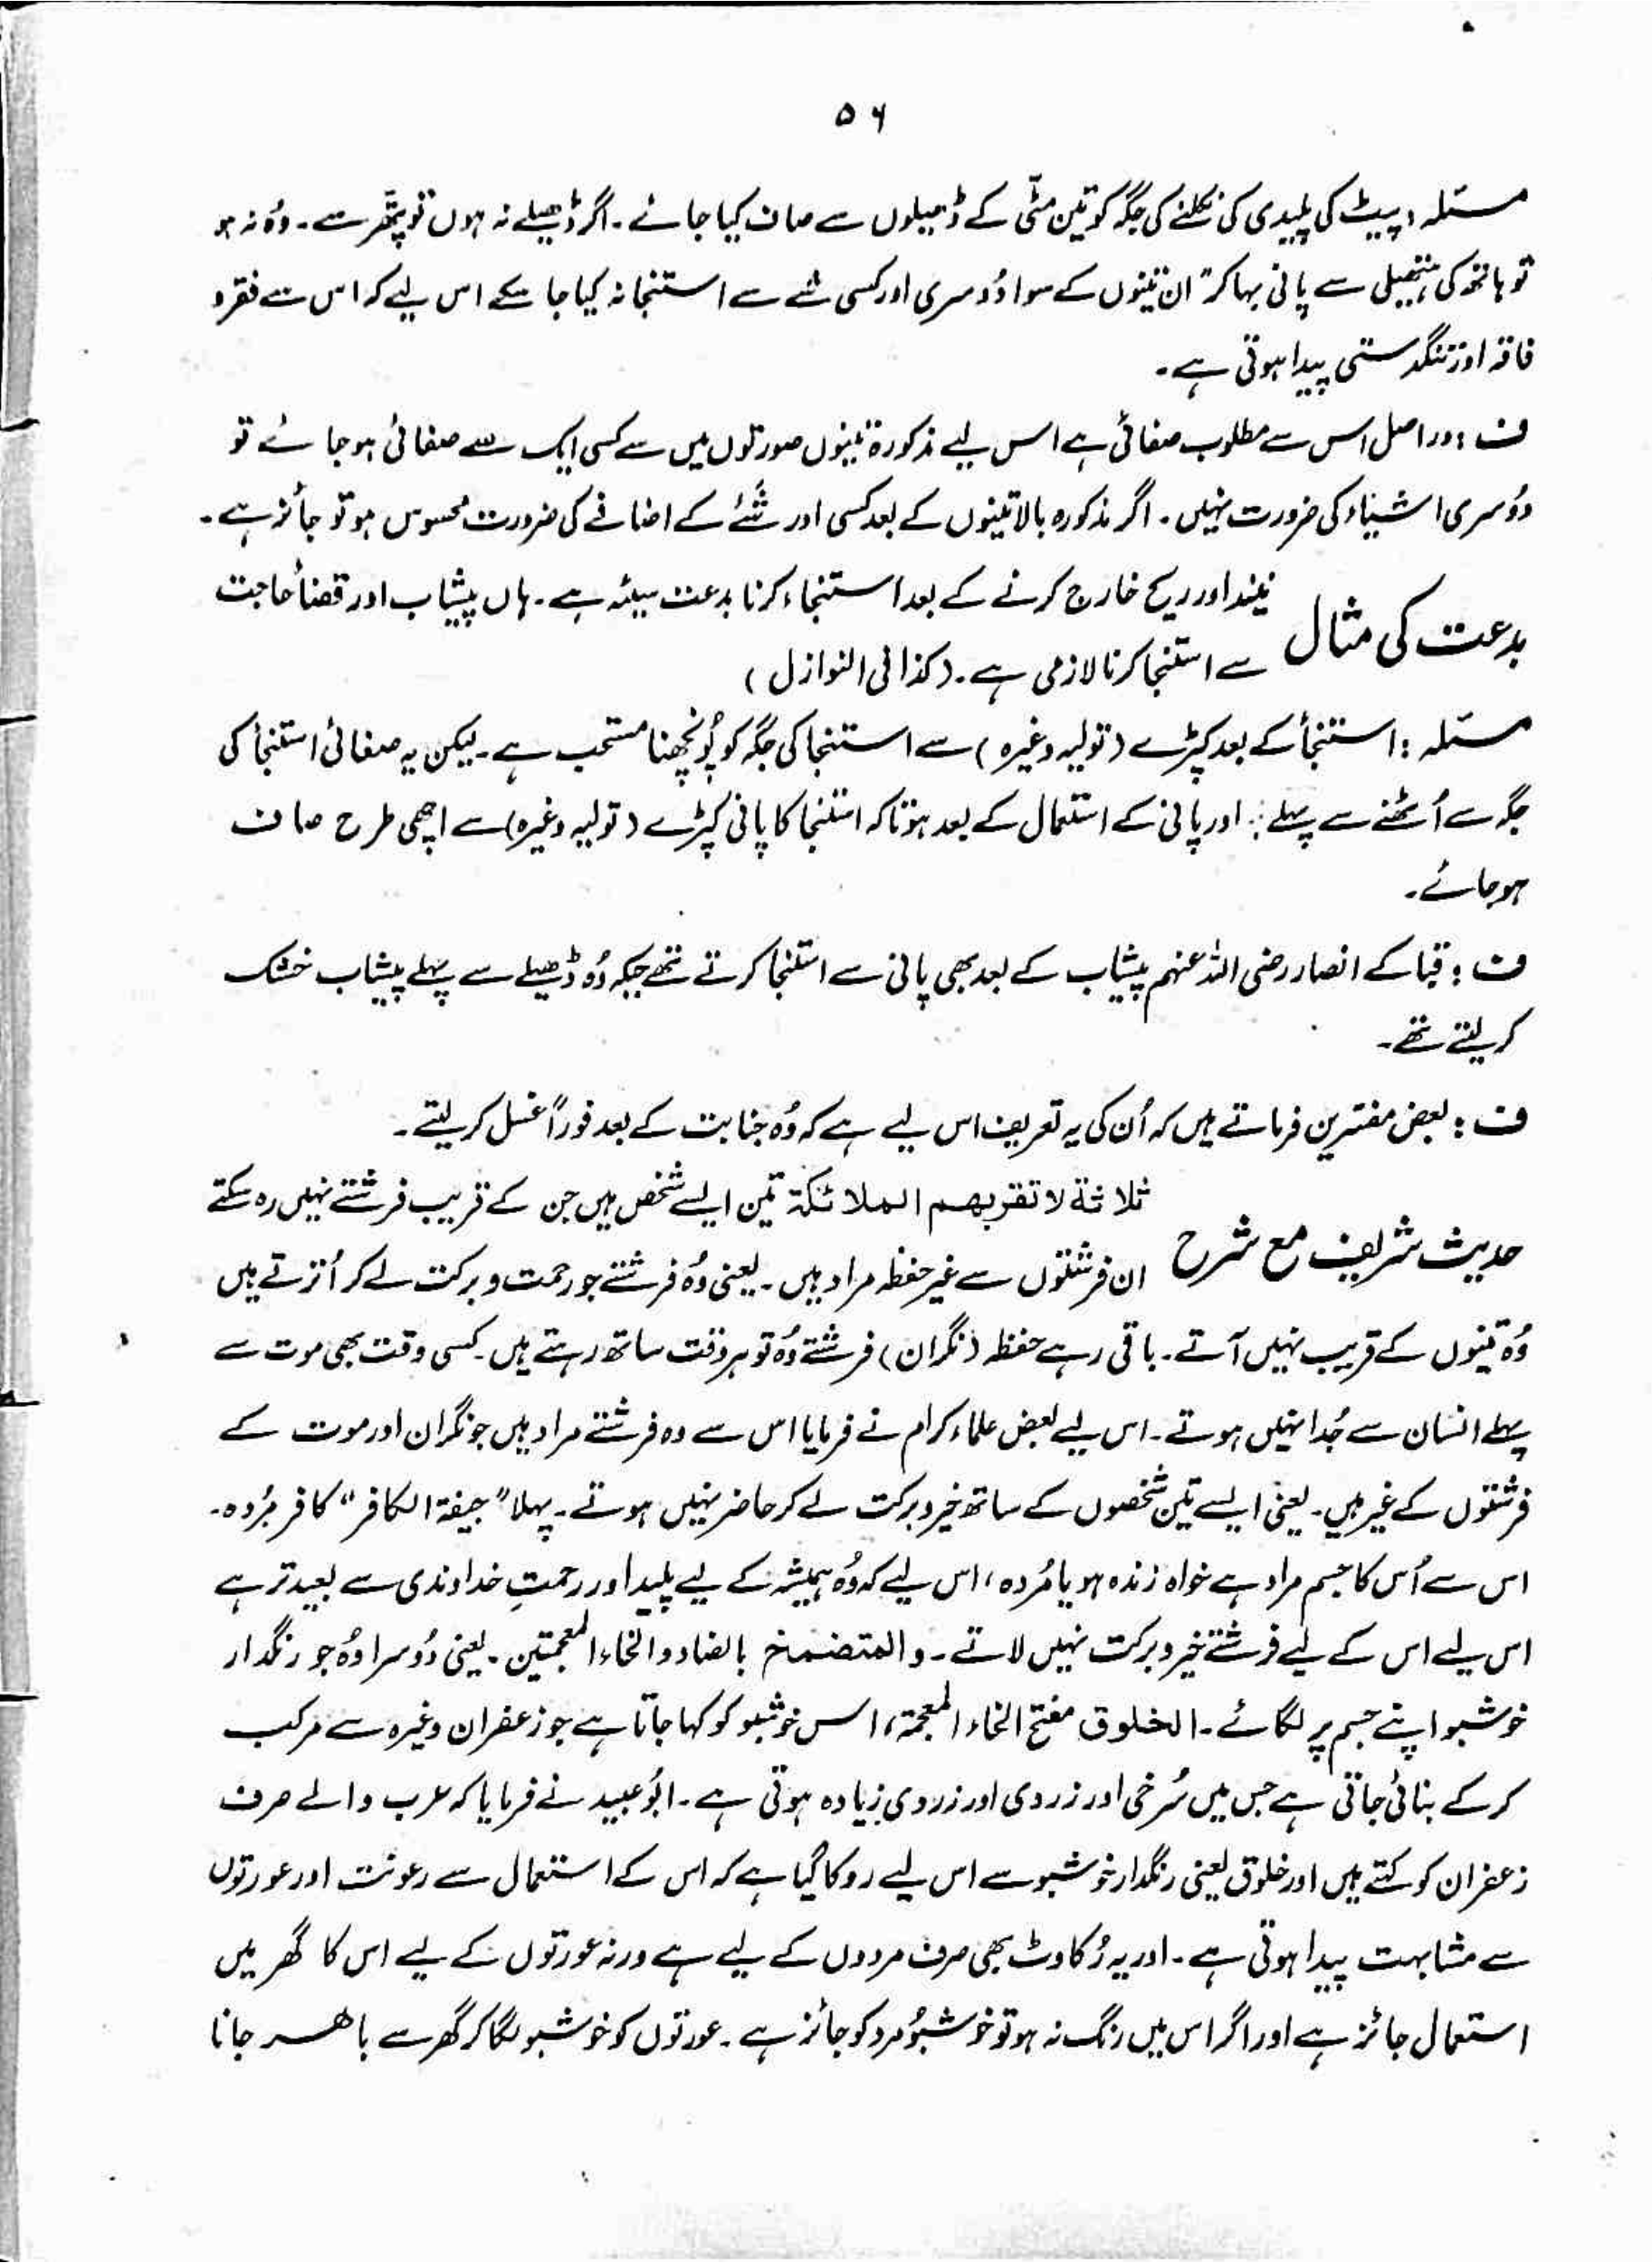 ۵۶
مسئلہ : پیٹ کی پلیدی کی نکلنے کی جگہ کو تین مٹی کے ڈھیلوں سے صاف کیا جائے ۔ اگر ڈھیلے نہ ہوں تو پتھر سے ۔ وُہ نہ ہو
تو ہاتھ کی ہتھیلی سے پانی بہا کر" ان تینوں کے سوا دُوسری اور کسی شے سے استنجا نہ کیا جا سکے اس لیے کہ اس سے فقرو
فاقہ اور تنگدستی پیدا ہوتی ہے ۔
ف : دراصل اس سے مطلوب صفائی ہے اس لیے مذکورۃ تینوں صورتوں میں سے کسی ایک سے صفائی ہوجائے تو
دُوسری اشیاء کی ضرورت نہیں ۔ اگر مذکورہ بالا تینوں کے بعد کسی اور شَئے کے اضافے کی ضرورت محسوس ہو تو جائز ہے ۔
نیند اور ریح خارج کرنے کے بعد استنجاء کرنا بدعت سیئہ ہے ۔ ہاں پیشاب اور قضأ حاجت
بدعت کی مثال
سے استنجا کرنا لازمی ہے ۔ (کذا فی النوازل)
مسئلہ : استنجأ کے بعد کپڑے (تولیہ وغیرہ) سے استنجا کی جگہ کو پُونچھنا مستحب ہے ۔ لیکن یہ صفائی استنجأ کی
جگہ سے اُٹھنے سے پہلے : اور پانی کے استعمال کے بعد ہو تاکہ استنجا کا پانی کپڑے (تولیہ وغیرہ) سے اچھی طرح صاف
ہوجائے ۔
ف : قبا کے انصار رضی اللہ عنہم پیشاب کے بعد بھی پانی سے استنجا کرتے تھے جبکہ وُہ ڈھیلے سے پہلے پیشاب خشک
کر لیتے تھے ۔
ف : بعض مفسّرین فرماتے ہیں کہ اُن کی یہ تعریف اس لیے ہے کہ وُہ جنابت کے بعد فوراً غسل کر لیتے ۔
ثلاثة لا تقربهم الملائكة تین ایسے شخص ہیں جن کے قریب فرشتے نہیں رہ سکتے
حدیث شریف مع شرح
ان فرشتوں سے غیر حفظہ مراد ہیں ۔ یعنی وُہ فرشتے جو رحمت و برکت لے کر اُترتے ہیں
وُہ تینوں کے قریب نہیں آتے ۔ باقی رہے حفظہ (نگران) فرشتے وُہ تو ہر وقت ساتھ رہتے ہیں ۔ کسی وقت بھی موت سے
پہلے انسان سے جُدا نہیں ہوتے ۔ اس لیے بعض علماء کرام نے فرمایا اس سے وہ فرشتے مراد ہیں جو نگران اور موت کے
فرشتوں کے غیر ہیں ۔ یعنی ایسے تین شخصوں کے ساتھ خیر و برکت لے کر حاضر نہیں ہوتے ۔ پہلا "جیفة الکافر" کافر مُردہ ۔
اس سے اُس کا جسم مراد ہے خواہ زندہ ہو یا مُردہ ، اس لیے کہ وُہ ہمیشہ کے لیے پلید اور رحمتِ خداوندی سے بعید تر ہے
اس لیے اس کے لیے فرشتے خیر و برکت نہیں لاتے ۔ والمتضمخ بالضاد والخاء المعجمتین ۔ یعنی دُوسرا وُہ جو رنگدار
خوشبو اپنے جسم پر لگائے ۔ الخلوق مفتح الخاء المعجمۃ ، اس خوشبو کو کہا جاتا ہے جو زعفران وغیرہ سے مرکب
کر کے بنائی جاتی ہے جس میں سُرخی اور زردی اور زردی زیادہ ہوتی ہے ۔ ابُو عبید نے فرمایا کہ عرب والے صرف
زعفران کو کہتے ہیں اور خلوق یعنی رنگدار خوشبو سے اس لیے روکا گیا ہے کہ اس کے استعمال سے رعونت اور عورتوں
سے مشابہت پیدا ہوتی ہے ۔ اور یہ رُکاوٹ بھی صرف مردوں کے لیے ہے ورنہ عورتوں کے لیے اس کا گھر میں
استعمال جائز ہے اور اگر اس میں رنگ نہ ہو تو خوشبُو مرد کو جائز ہے ۔ عورتوں کو خوشبو لگا کر گھر سے باھر جانا